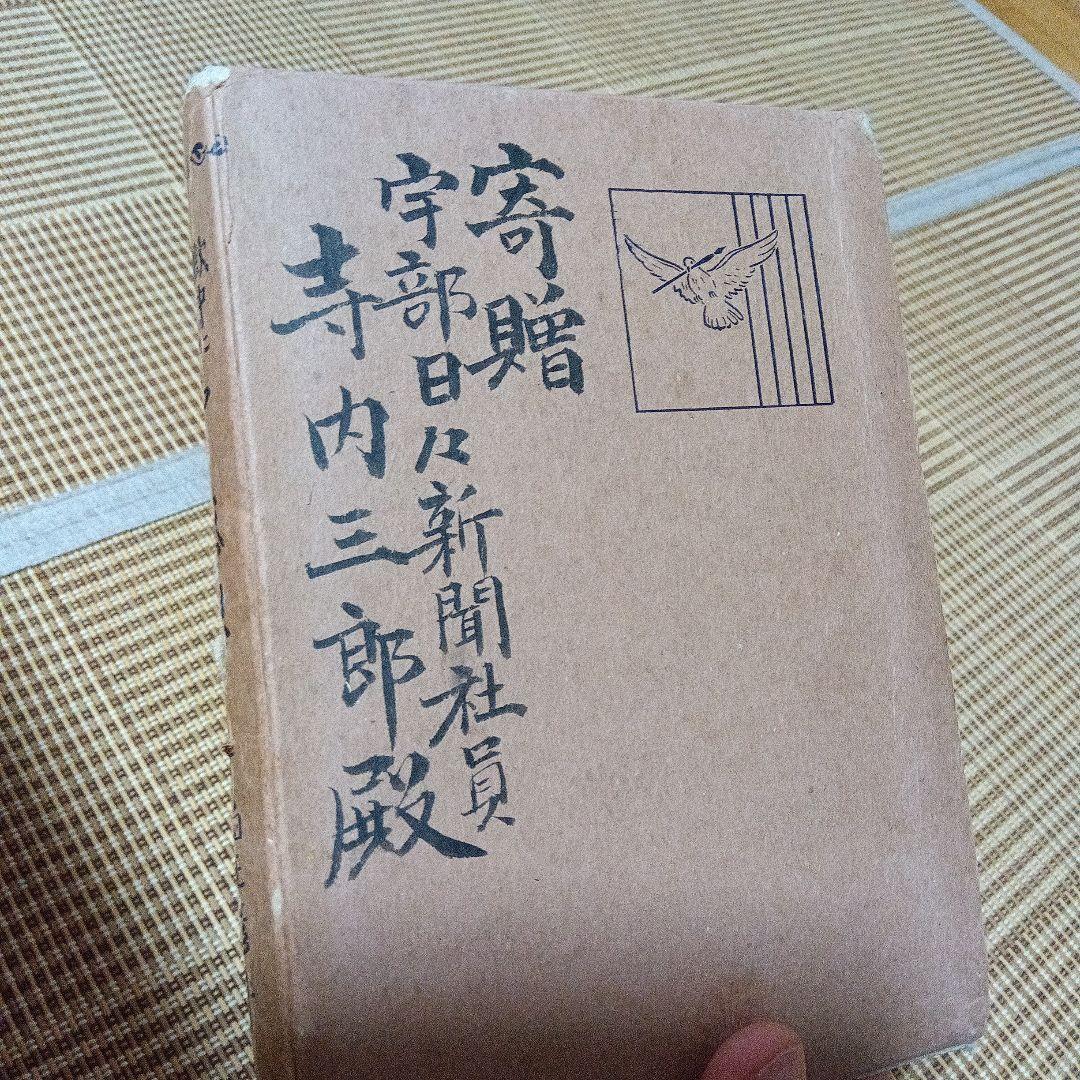 寄贈
宇部日々新聞社員
寺内三郎殿